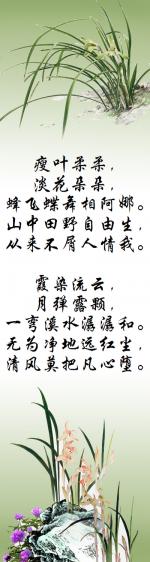 瘦叶柔柔，
淡花朵朵，
蜂飞蝶舞相阿娜。
山中田野自由生，
从来不屑人情我。
霞染流云，
月弹露颗，
一弯溪水潺潺和。
无为净地远红尘，
清风莫把凡心堕。